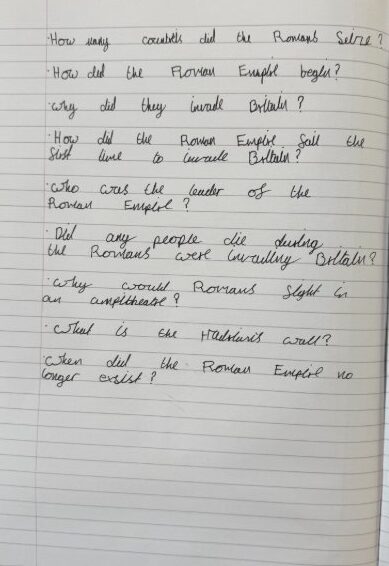 ·How many countrıs did the Romans Seize?
·How did the Roman Empire begin?
·Why did they invade Britain?
·How did the Roman Empire fail the
first time to invade Britain?
·Who was the leader of the
Roman Empire?
·Did any people die during
the Romans were invading Britain?
·Why would Romans fight in
an ampitheatre?
·What is the Hadrian's wall?
·When did the Roman Empire no
longer exsist?